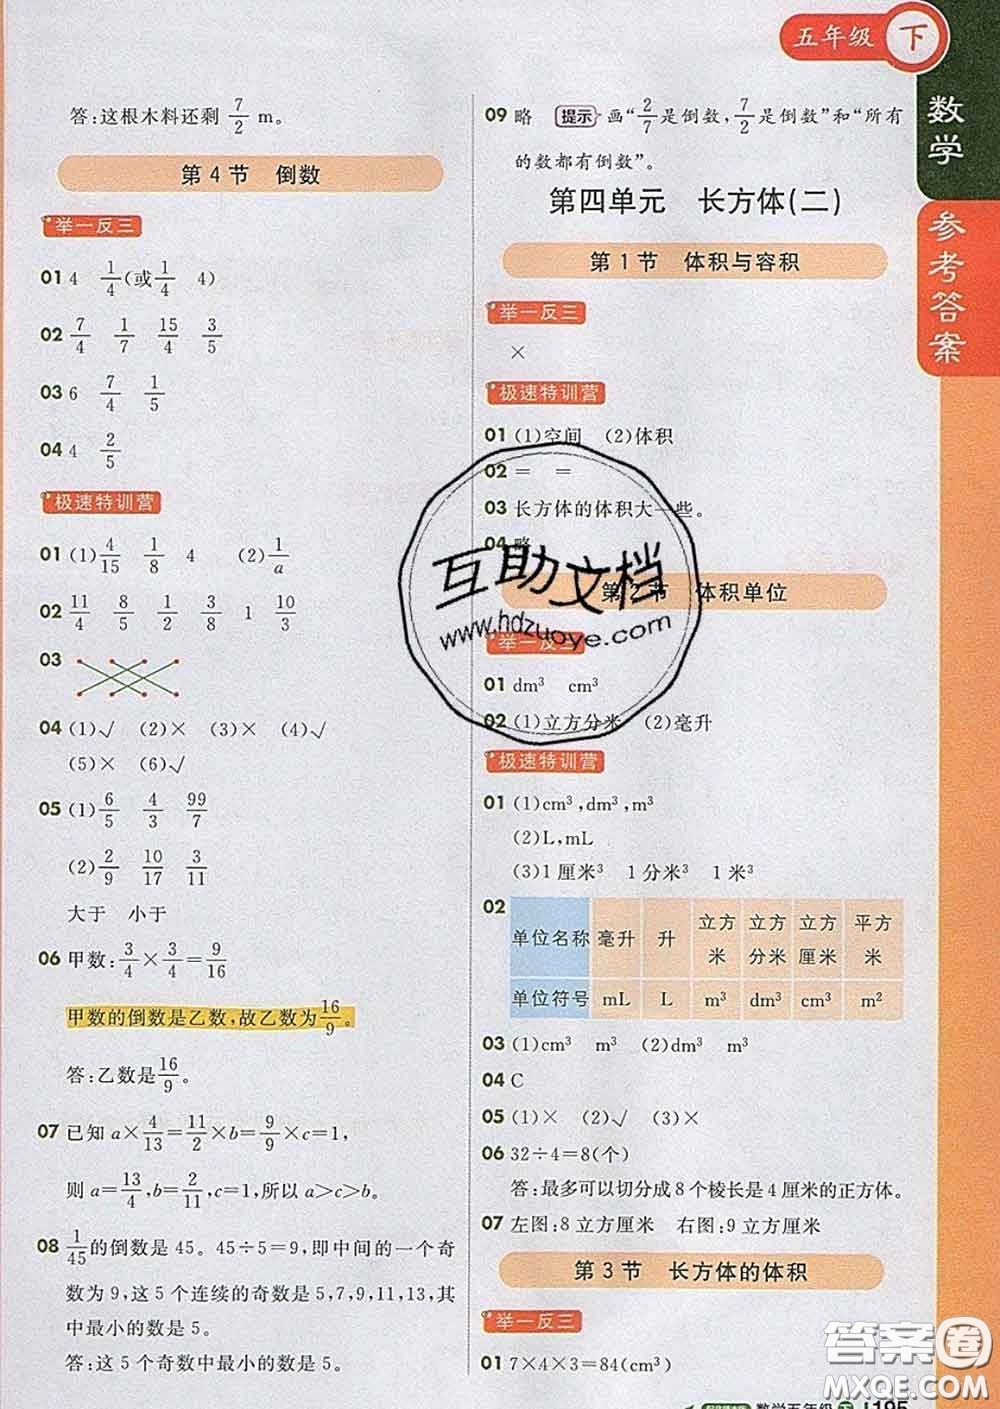 五年级 下
数学
参考答案
答:这根木料还剩 7/2 m。
第 4 节 倒数
举一反三
01 4 1/4(或1/4 4)
02 7/4 1/7 15/4 3/5
03 6 7/4 1/5
04 4 2/5
极速特训营
01 (1)4/15 1/8 4 (2)1/a
02 11/4 8/5 1/2 3/8 1 10/3
03
04 (1)√ (2)× (3)× (4)√
(5)× (6)√
05 (1)6/5 4/3 99/7
(2)2/9 10/17 3/11
大于 小于
06 甲数:3/4×3/4=9/16
甲数的倒数是乙数,故乙数为16/9。
答:乙数是16/9。
07 已知 a×4/13=11/2×b=9/9×c=1,
则 a=13/4,b=2/11,c=1,所以 a>c>b。
08 1/45的倒数是 45。45÷5=9,即中间的一个奇
数为 9,这 5 个连续的奇数是 5,7,9,11,13,其
中最小的数是 5。
答:这 5 个奇数中最小的数是 5。
09 略 提示 画“2/7是倒数,7/2是倒数”和“所有
的数都有倒数”。
第四单元 长方体(二)
第 1 节 体积与容积
举一反三
×
极速特训营
01 (1)空间 (2)体积
02 = =
03 长方体的体积大一些。
04 略
第 2 节 体积单位
举一反三
01 dm³ cm³
02 (1)立方分米 (2)毫升
极速特训营
01 (1)cm³,dm³,m³
(2)L,mL
(3)1 厘米³ 1 分米³ 1 米³
02 单位名称 毫升 升 立方米 立方分米 立方厘米 平方米
单位符号 mL L m³ dm³ cm³ m²
03 (1)cm³ m³ (2)dm³ m³
04 C
05 (1)× (2)√ (3)×
06 32÷4=8(个)
答:最多可以切分成 8 个棱长是 4 厘米的正方体。
07 左图:8 立方厘米 右图:9 立方厘米
第 3 节 长方体的体积
举一反三
01 7×4×3=84(cm³)
数学五年级 下 195
互助文档
www.hdzuoye.com
答案圈
MXQE.COM